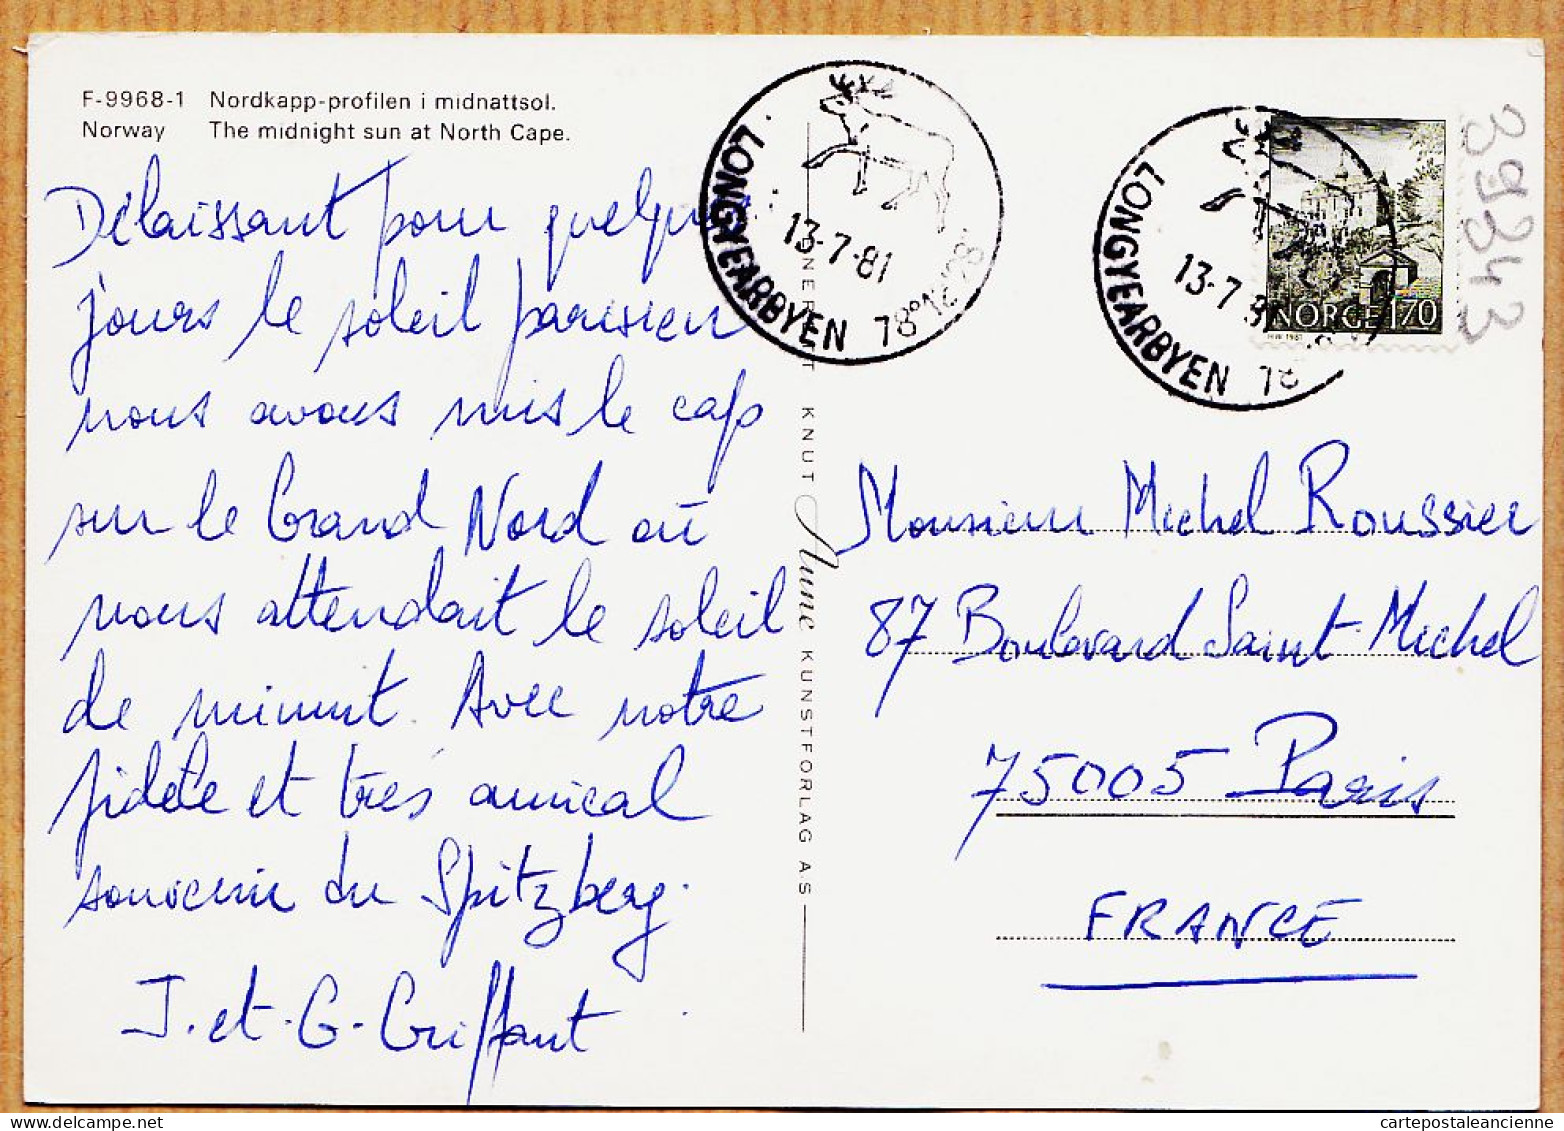 F-9968-1 Nordkapp-profilen i midnattsol.
Norway The midnight sun at North Cape.
Délaissant pour quelques
jours le soleil parisien
nous avons mis le cap
sur le Grand Nord où
nous attendait le soleil
de minuit. Avec notre
fidèle et très amical
souvenir du Spitzberg.
J. et G. Griffaut
KNUT Aune KUNSTFORLAG A.S
LONGYEARBYEN 78°12'28"
13-7-81
LONGYEARBYEN 78
13-7-8
NORGE 170
39343
Monsieur Michel Roussier
87 Boulevard Saint-Michel
75005 Paris
FRANCE
cartepostaleancienne.com